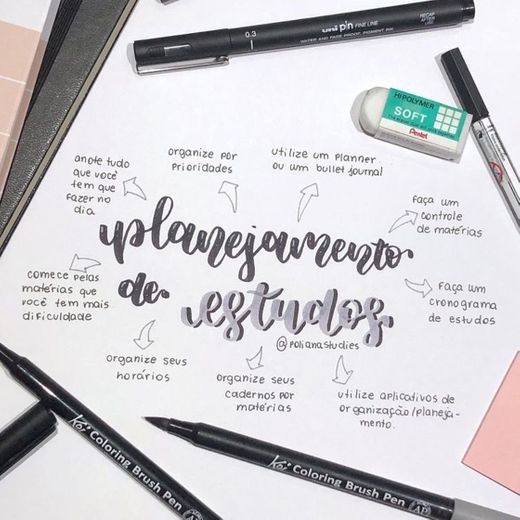 0.3
uni pin FINE LINE
WATER AND FADE PROOF, PIGMENT INK
HI-POLYMER
SOFT
Pentel
anote tudo
que você
tem que
fazer no
dia
organize por
prioridades
utilize um planner
ou um bullet journal
faça um
controle
de matérias
planejamento
de estudos
@polianastudies
comece pelas
matérias que
você tem mais
dificuldade
Faça um
cronograma
de estudos
organize seus
horários
organize seus
cadernos por
matérias
utilize aplicativos de
organização/planeja-
mento.
Koi Coloring Brush Pen AP
Koi Coloring Brush Pen AP